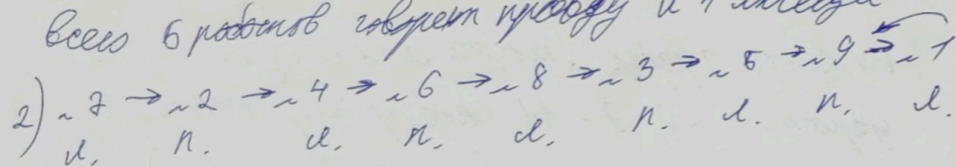 всего 6 роботов говорят правду и
2) ~7 → ~2 → ~4 → ~6 → ~8 → ~3 → ~5 → ~9 → ~1
л. п. л. п. л. п. л. п. л.